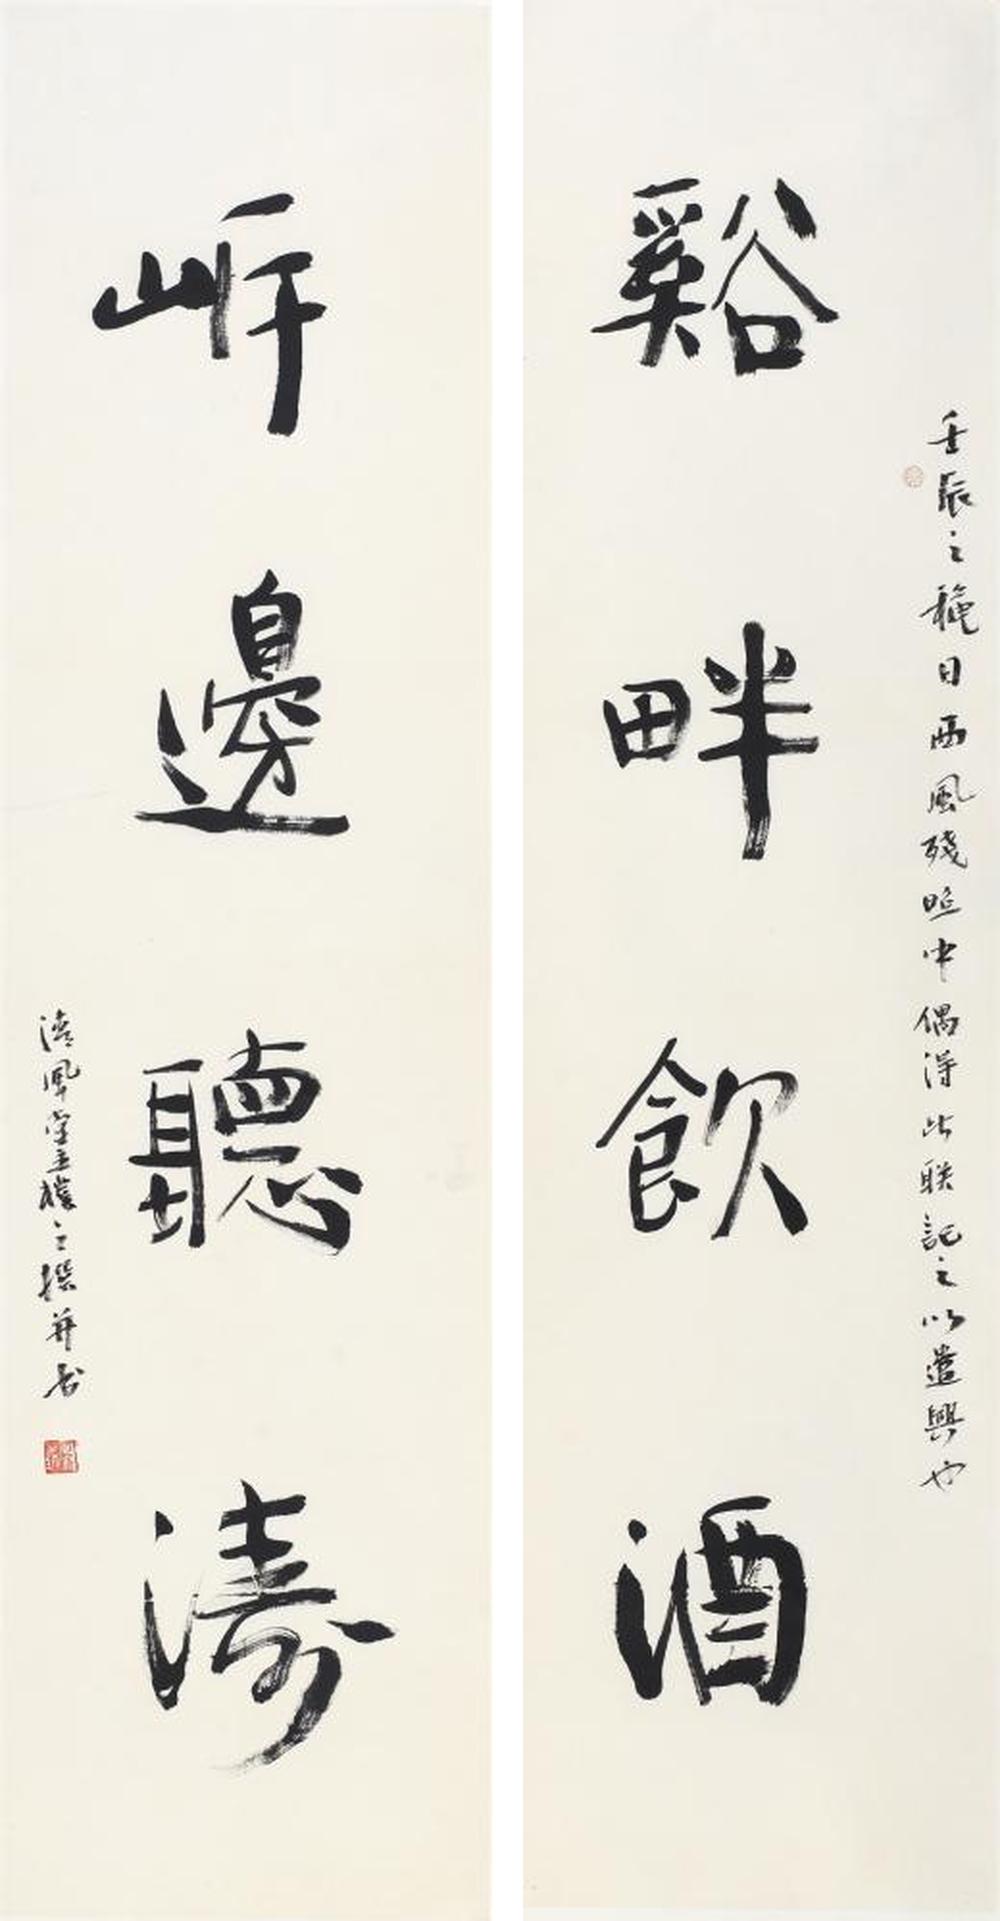 谿畔飲酒
壬辰之龝日西風殘照中偶得此联記之以遣興也
岸邊聽濤
清風堂主樸之撰并书